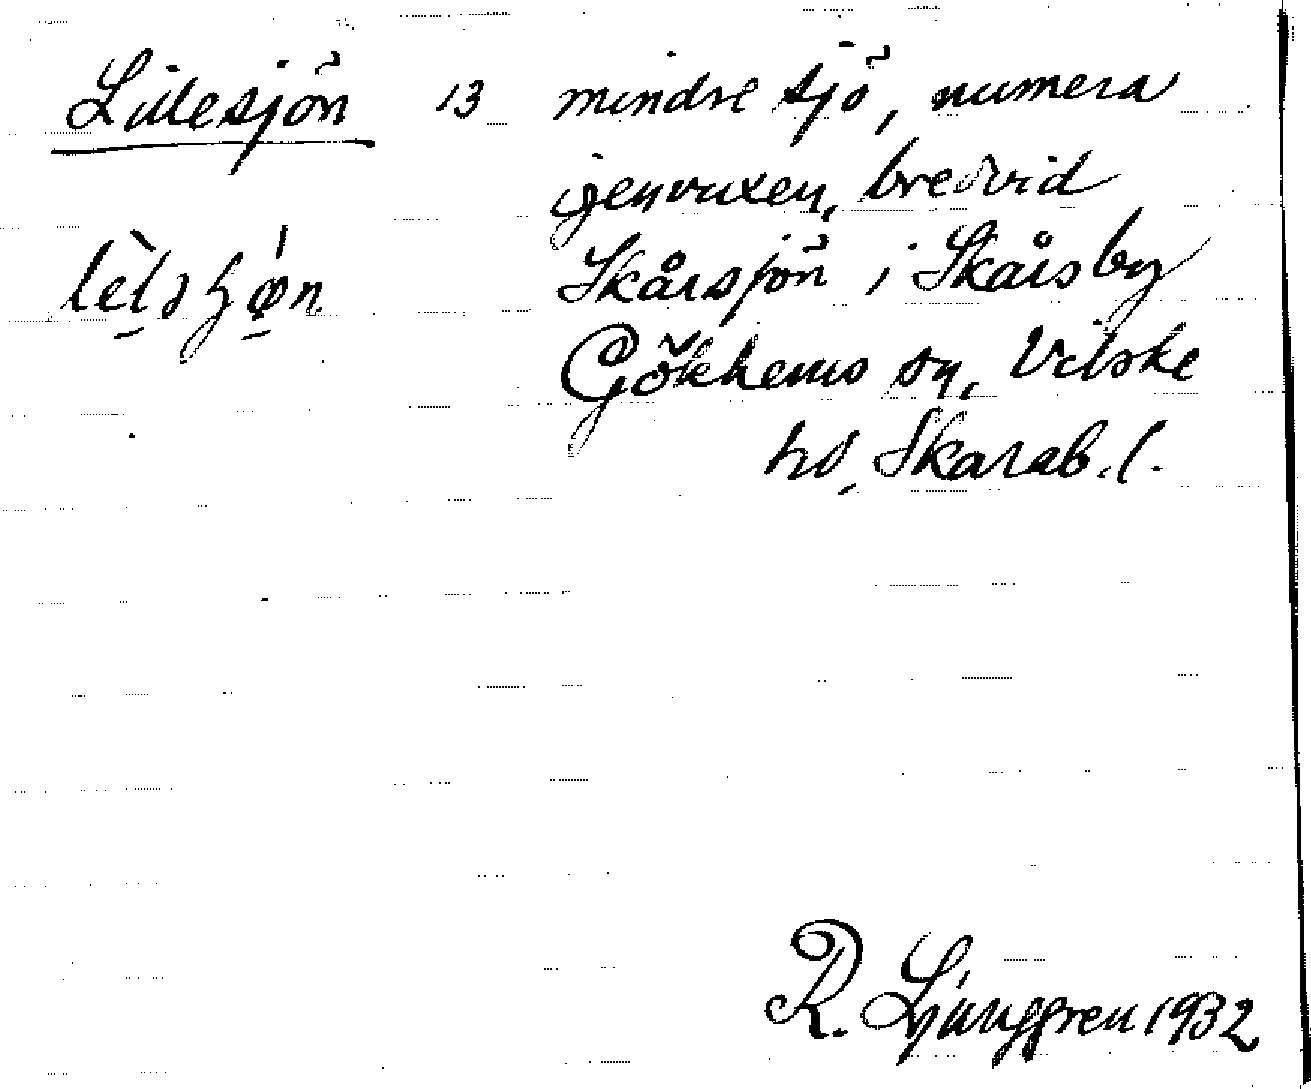 Lillesjön 13 mindre sjö, numera
igenvuxen, bredvid
Skårsjön i Skårsby
Gökhems sn, Vilske
hd, Skarab. l.
R. Ljunggren 1932